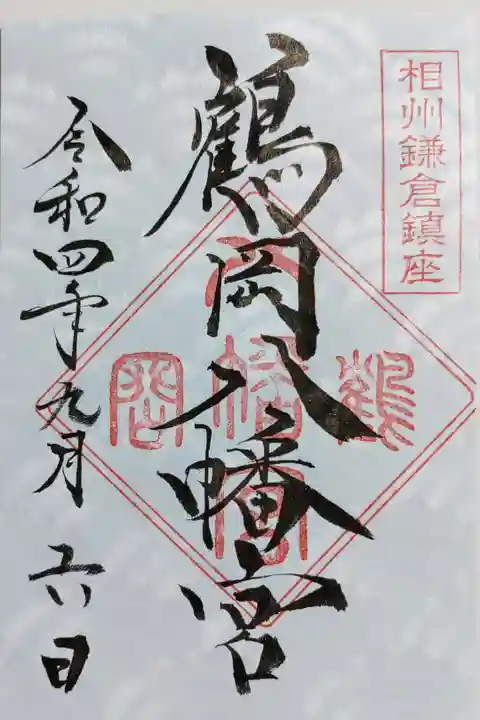 相州鎌倉鎮座
鶴岡八幡宮
令和四年九月六日